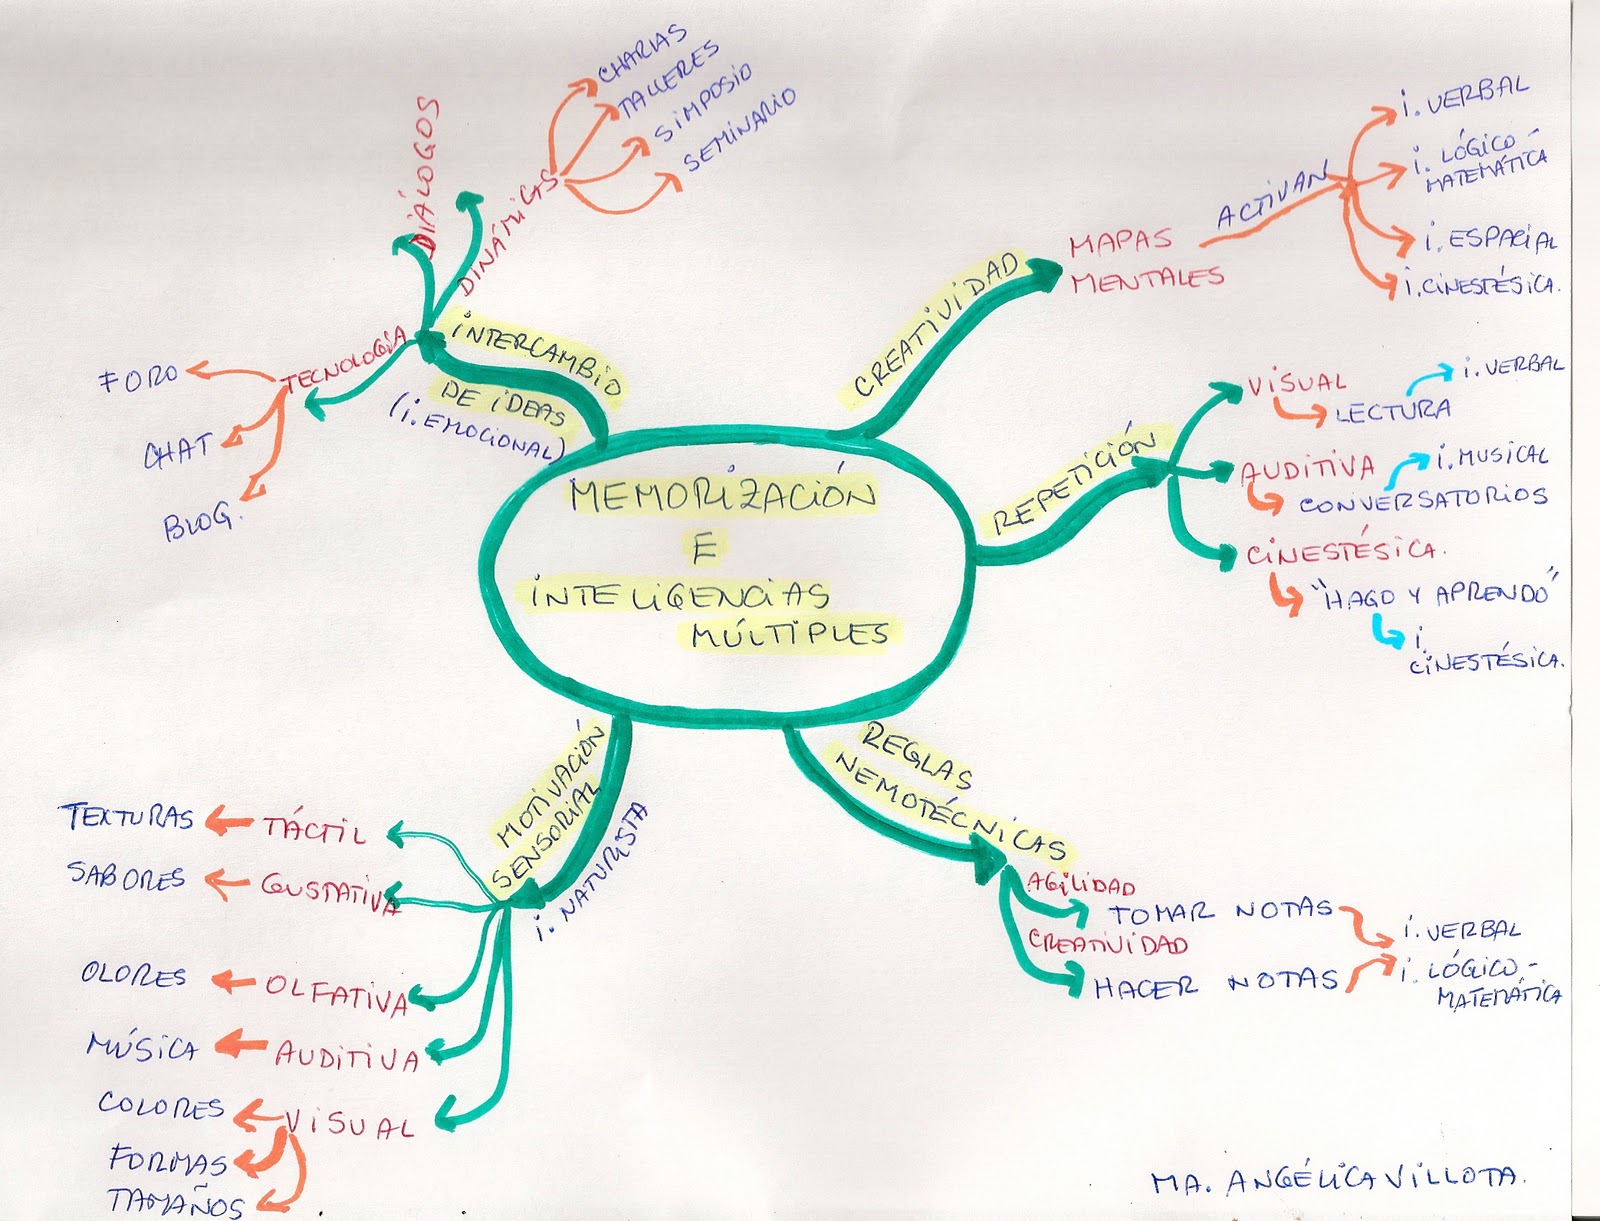 MEMORIZACIÓN
E
INTELIGENCIAS
MÚLTIPLES
INTERCAMBIO
DE IDEAS
(i. EMOCIONAL)
DIÁLOGOS
DINÁMICAS
CHARLAS
TALLERES
SIMPOSIO
SEMINARIO
TECNOLOGIA
FORO
CHAT
BLOG.
CREATIVIDAD
MAPAS
MENTALES
ACTIVAN
i. VERBAL
i. LÓGICO
MATEMÁTICA
i. ESPACIAL
i. CINESTÉSICA.
REPETICIÓN
VISUAL
LECTURA
i. VERBAL
AUDITIVA
CONVERSATORIOS
i. MUSICAL
CINESTÉSICA.
"HAGO Y APRENDO"
i.
CINESTÉSICA.
REGLAS
NEMOTÉCNICAS
AGILIDAD
TOMAR NOTAS
CREATIVIDAD
HACER NOTAS
i. VERBAL
i. LÓGICO-
MATEMÁTICA
MOTIVACIÓN
SENSORIAL
i. NATURISTA
TÁCTIL
TEXTURAS
GUSTATIVA
SABORES
OLFATIVA
OLORES
AUDITIVA
MÚSICA
VISUAL
COLORES
FORMAS
TAMAÑOS
MA. ANGÉLICA VILLOTA.